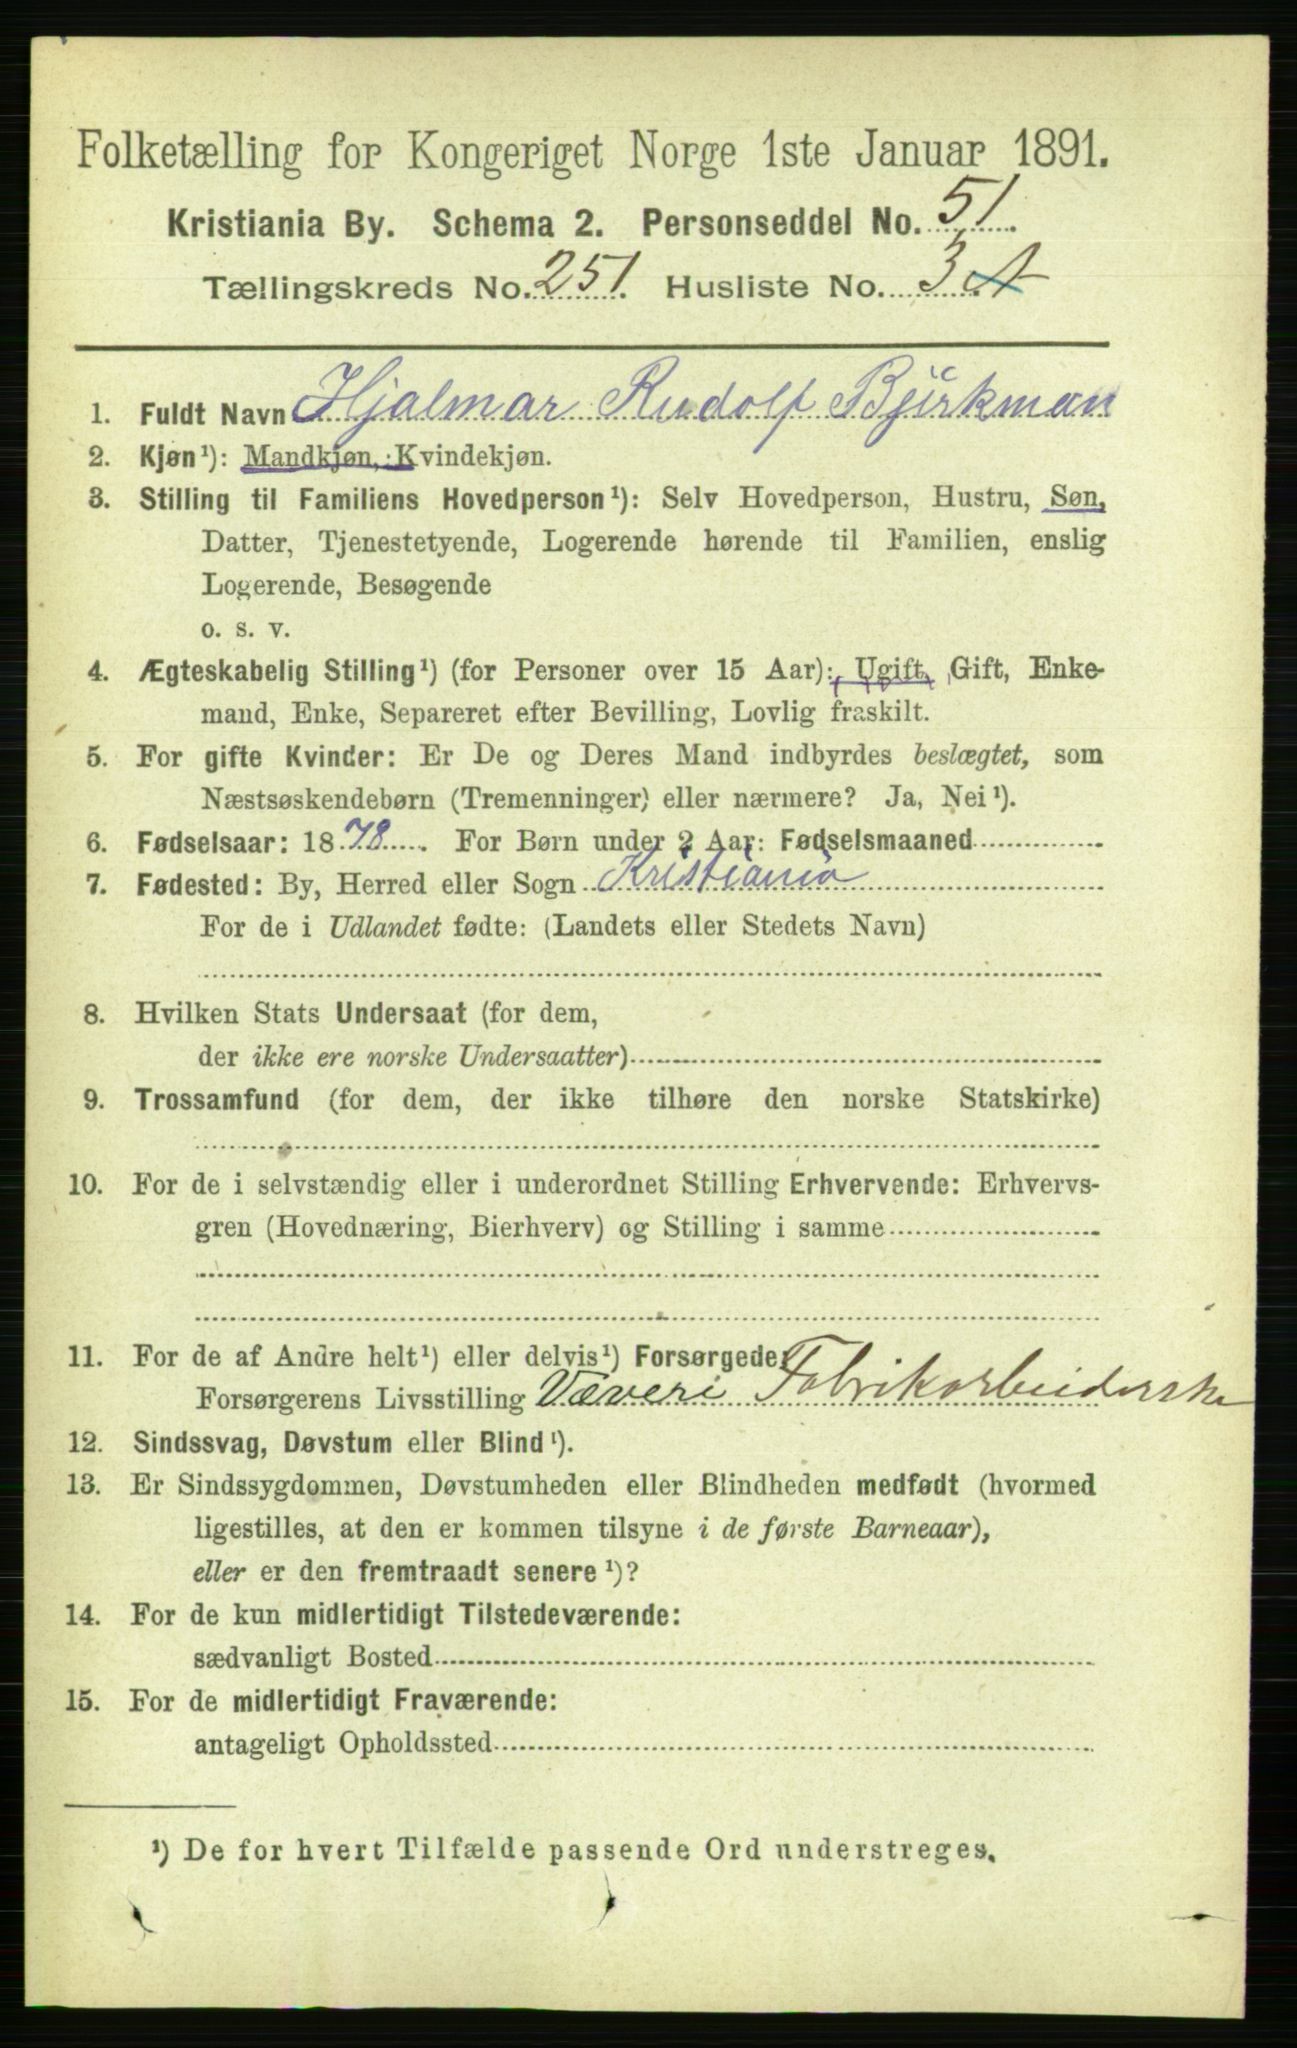 Folketælling for Kongeriget Norge 1ste Januar 1891.
Kristiania By. Schema 2. Personseddel No. 51.
Tællingskreds No. 251. Husliste No. 3 A
1. Fuldt Navn Hjalmar Rudolf Björkman
2. Kjøn¹): Mandkjøn, Kvindekjøn.
3. Stilling til Familiens Hovedperson¹): Selv Hovedperson, Hustru, Søn,
Datter, Tjenestetyende, Logerende hørende til Familien, enslig
Logerende, Besøgende
o. s. v.
4. Ægteskabelig Stilling¹) (for Personer over 15 Aar): Ugift, Gift, Enke-
mand, Enke, Separeret efter Bevilling, Lovlig fraskilt.
5. For gifte Kvinder: Er De og Deres Mand indbyrdes beslægtet, som
Næstsøskendebørn (Tremenninger) eller nærmere? Ja, Nei¹).
6. Fødselsaar: 1878. For Børn under 2 Aar: Fødselsmaaned
7. Fødested: By, Herred eller Sogn Kristiania
For de i Udlandet fødte: (Landets eller Stedets Navn)
8. Hvilken Stats Undersaat (for dem,
der ikke ere norske Undersaatter)
9. Trossamfund (for dem, der ikke tilhøre den norske Statskirke)
10. For de i selvstændig eller i underordnet Stilling Erhvervende: Erhvervs-
gren (Hovednæring, Bierhverv) og Stilling i samme
11. For de af Andre helt¹) eller delvis¹) Forsørgede:
Forsørgerens Livsstilling Væveri Fabrikarbeiderske
12. Sindssvag, Døvstum eller Blind¹).
13. Er Sindssygdommen, Døvstumheden eller Blindheden medfødt (hvormed
ligestilles, at den er kommen tilsyne i de første Barneaar),
eller er den fremtraadt senere¹)?
14. For de kun midlertidigt Tilstedeværende:
sædvanligt Bosted
15. For de midlertidigt Fraværende:
antageligt Opholdssted
¹) De for hvert Tilfælde passende Ord understreges.